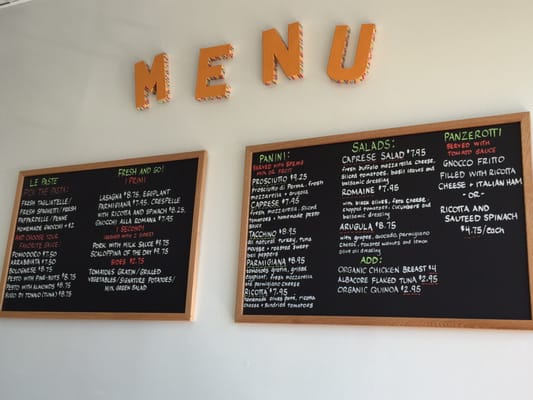 MENU
LE PASTE
PICK THE PASTA:
FRESH TAGLIATELLE/
FRESH SPAGHETTI/FRESH
PAPPARDELLE/PENNE
HOMEMADE GNOCCHI + $2
AND CHOOSE YOUR
FAVORITE SAUCE:
POMODORO $7.50
ARRABIATA $7.50
BOLOGNESE $8.75
PESTO WITH PINE-NUTS $8.75
PESTO WITH ALMONDS $8.75
SUGO DI TONNO (TUNA) $8.75
FRESH AND GO!
I PRIMI
LASAGNA $8.75, EGGPLANT
PARMIGIANA $7.95, CRESPELLE
WITH RICOTTA AND SPINACH $8.25
GNOCCHI ALLA ROMANA $7.95
I SECONDI
PORK WITH MILK SAUCE $9.75
SCALOPPINA OF THE DAY $9.75
SIDES $2.75
TOMATOES GRATIN/GRILLED
VEGETABLES/SIGNATURE POTATOES/
MIX GREEN SALAD
PANINI:
SERVED WITH SPRING
MIX OR FRUIT
PROSCIUTTO $9.25
prosciutto di Parma, fresh
mozzarella + arugola
CAPRESE $7.95
fresh mozzarella, sliced
tomatoes + homemade pesto
sauce
TACCHINO $8.95
all natural turkey, tuna
mousse, roasted
bell peppers
PARMIGIANA $8.95
tomatoes gratin, grilled
eggplant, fresh mozzarella
and parmigiano cheese
RICOTTA $7.95
homemade olives paté, ricotta
cheese + sundried tomatoes
SALADS:
CAPRESE SALAD $7.95
fresh buffalo mozzarella cheese,
sliced tomatoes, basil leaves and
balsamic dressing
ROMAINE $7.95
with black olives, feta cheese,
chopped tomatoes, cucumbers and
balsamic dressing
ARUGULA $8.75
with grapes, avocado, parmigiano
cheese, roasted walnuts and lemon
olive oil dressing
ADD:
ORGANIC CHICKEN BREAST $4
ALBACORE FLAKED TUNA $2.95
ORGANIC QUINOA $2.95
PANZEROTTI
SERVED WITH
TOMATO SAUCE
GNOCCO FRITTO
FILLED WITH RICOTTA
CHEESE + ITALIAN HAM
- OR -
RICOTTA AND
SAUTEED SPINACH
$4.75/each